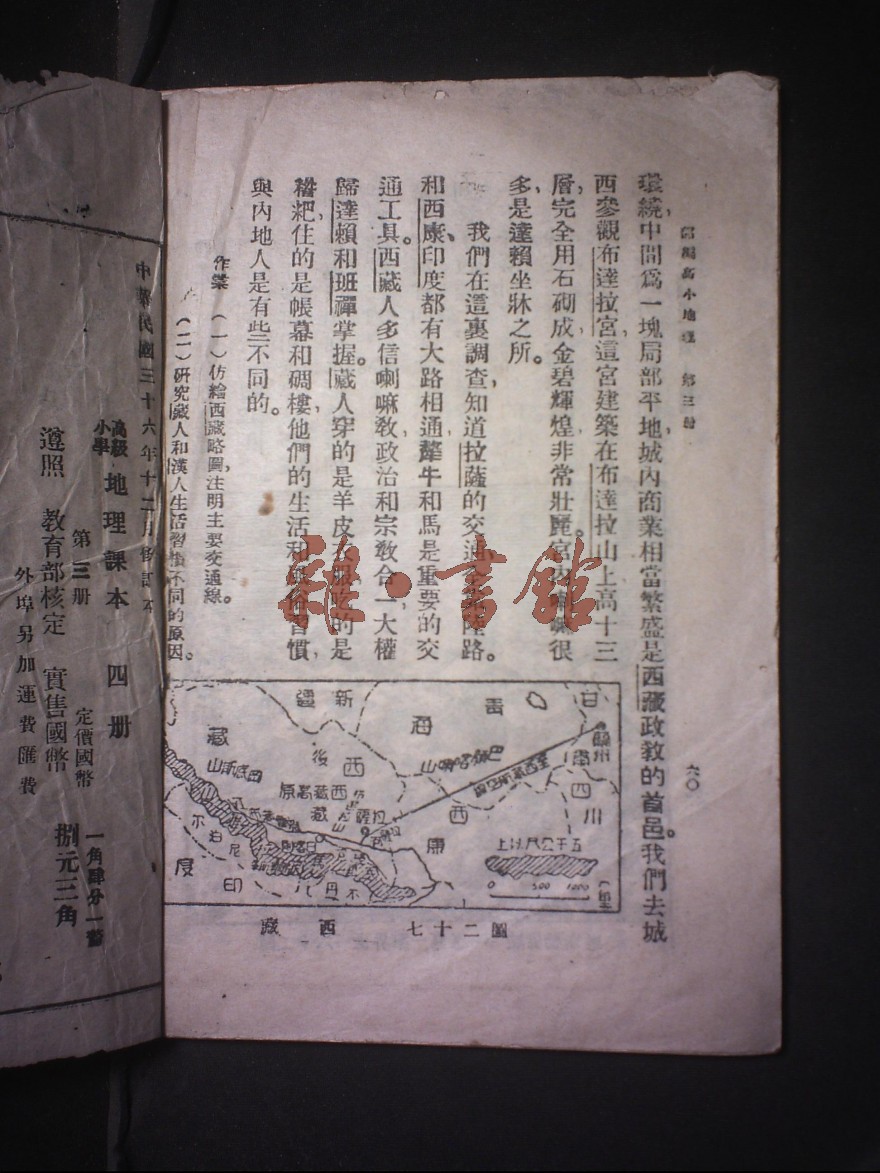 高小地理 第三册
六〇
環繞,中間爲一塊局部平地,城內商業相當繁盛,是西藏政教的首邑。我們去城
西參觀布達拉宮,這宮建築在布達拉山上,高十三
層,完全用石砌成,金碧輝煌,非常壯麗。宮內喇嘛很
多,是達賴坐牀之所。
我們在這裏調查,知道拉薩的交通全靠陸路。
和西康、印度都有大路相通,犛牛和馬是重要的交
通工具。西藏人多信喇嘛教,政治和宗敎合一,大權
歸達賴和班禪掌握。藏人穿的是羊皮衣服,吃的是
糌粑,住的是帳幕和碉樓,他們的生活和風俗習慣,
與內地人是有些不同的。
作業 (一)仿繪西藏略圖,注明主要交通線。
(二)研究藏人和漢人生活習慣不同的原因。
新疆
青海
甘肅
蘭州
四川
西康
西藏高原
後藏
拉薩
印度
不丹
尼泊
五千公尺以上
0 500 1000
圖二十七 西藏
中華民國三十六年十二月修訂本
高級小學 地理課本 四册
第三册 定價國幣 一角肆分一釐
遵照 教育部核定 實售國幣 捌元三角
外埠另加運費匯費
雜·書館